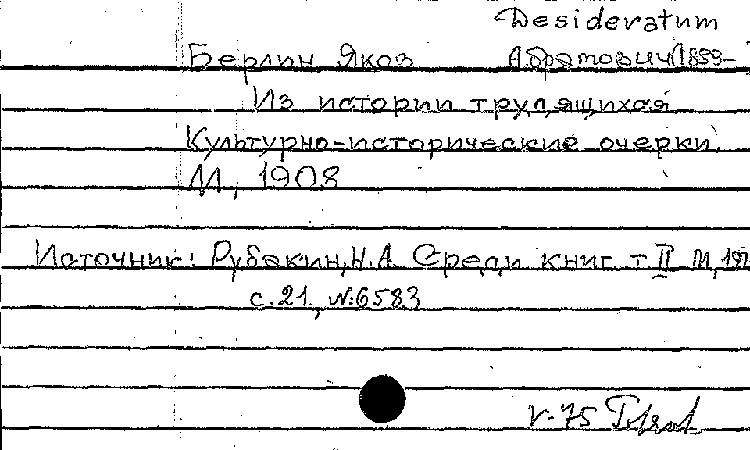 Desideratum
Берлин Яков Абрамович (1859-
Из истории трудящихся
Культурно-исторические очерки.
М., 1908
Источник: Рубакин, Н.А. Среди книг т II М, 191
с. 21, N:6583
V-75